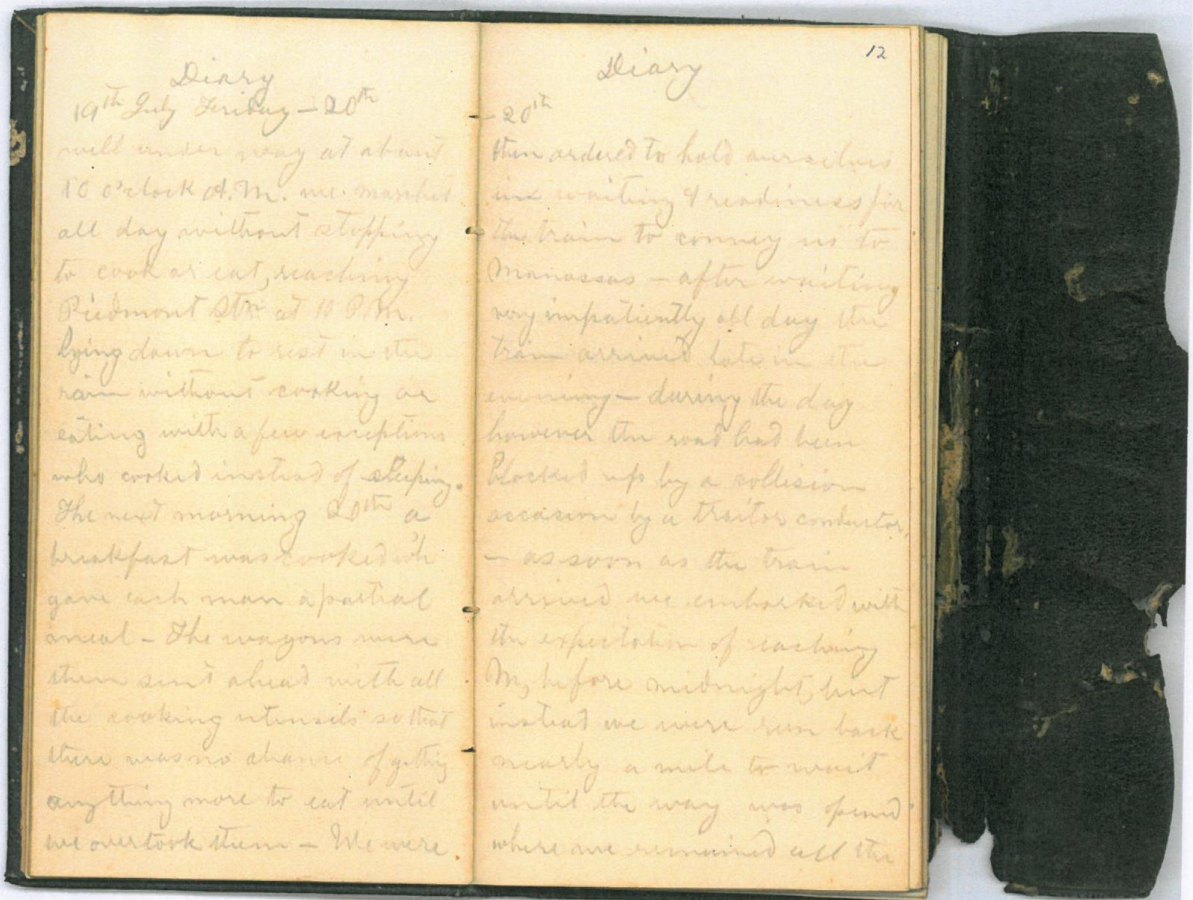 Diary
19th July Friday - 20th
well under way at about
10 o'clock A.M. we marched
all day without stopping
to cook or eat, reaching
Piedmont Stn at 10 P.M.
lying down to rest in the
rain without cooking or
eating with a few exceptions
who cooked instead of sleeping.
The next morning 20th a
breakfast was cooked wh
gave each man a partial
meal - The wagons were
then sent ahead with all
the cooking utensils so that
there was no chance of getting
anything more to eat until
we overtook them - We were
12
Diary
- 20th
then ordered to hold ourselves
in waiting & readiness for
the train to convey us to
Manassas - after waiting
very impatiently all day the
train arrived late in the
evening - during the day
however the road had been
blocked up by a collision
occasion by a traitor conductor,
- as soon as the train
arrived we embarked with
the expectation of reaching
M, before midnight, but
instead we were run back
nearly a mile to wait
until the way was opened
where we remained all the